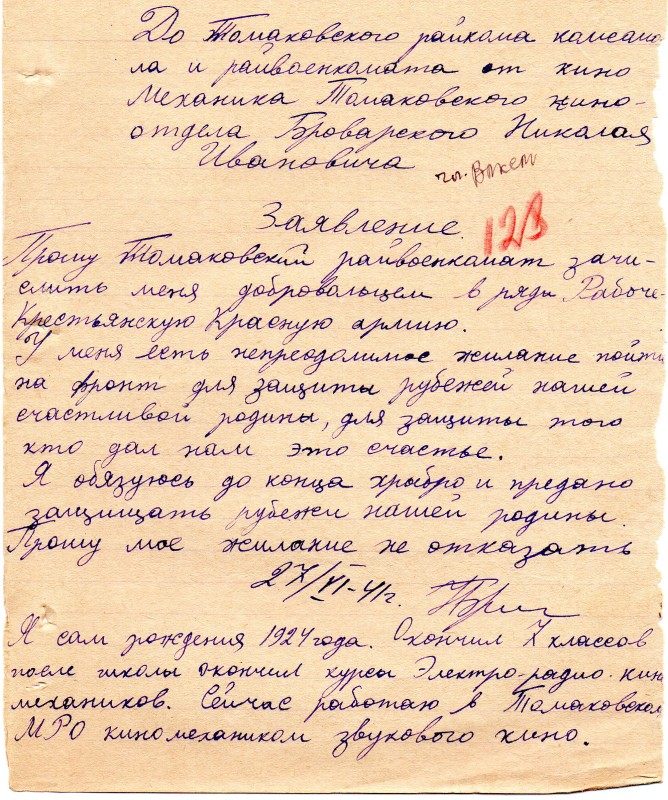 До Томаковского райкома комсомо
ла и райвоенкомата от кино
Механика Томаковского кино-
отдела Броварского Николая
Ивановича
чл. Влксм
Заявление.
123
Прошу Томаковский райвоенкомат зачи-
слить меня добровольцем в ряды Рабоче-
Крестьянскую Красную армию.
У меня есть непреодолимое жилание пойти
на фронт для защиты рубежей нашей
счастливой родины, для защиты того
кто дал нам это счастье.
Я обязуюсь до конца храбро и предано
защищать рубежи нашей родины.
Прошу мое жилание не отказать
27/VI-41г.
Я сам рождения 1924 года. Окончил 7 классов
после школы окончил курсы Электро-радио-кино
механиков. Сейчас работаю в Томаковском
МРО киномехаником звукового кино.